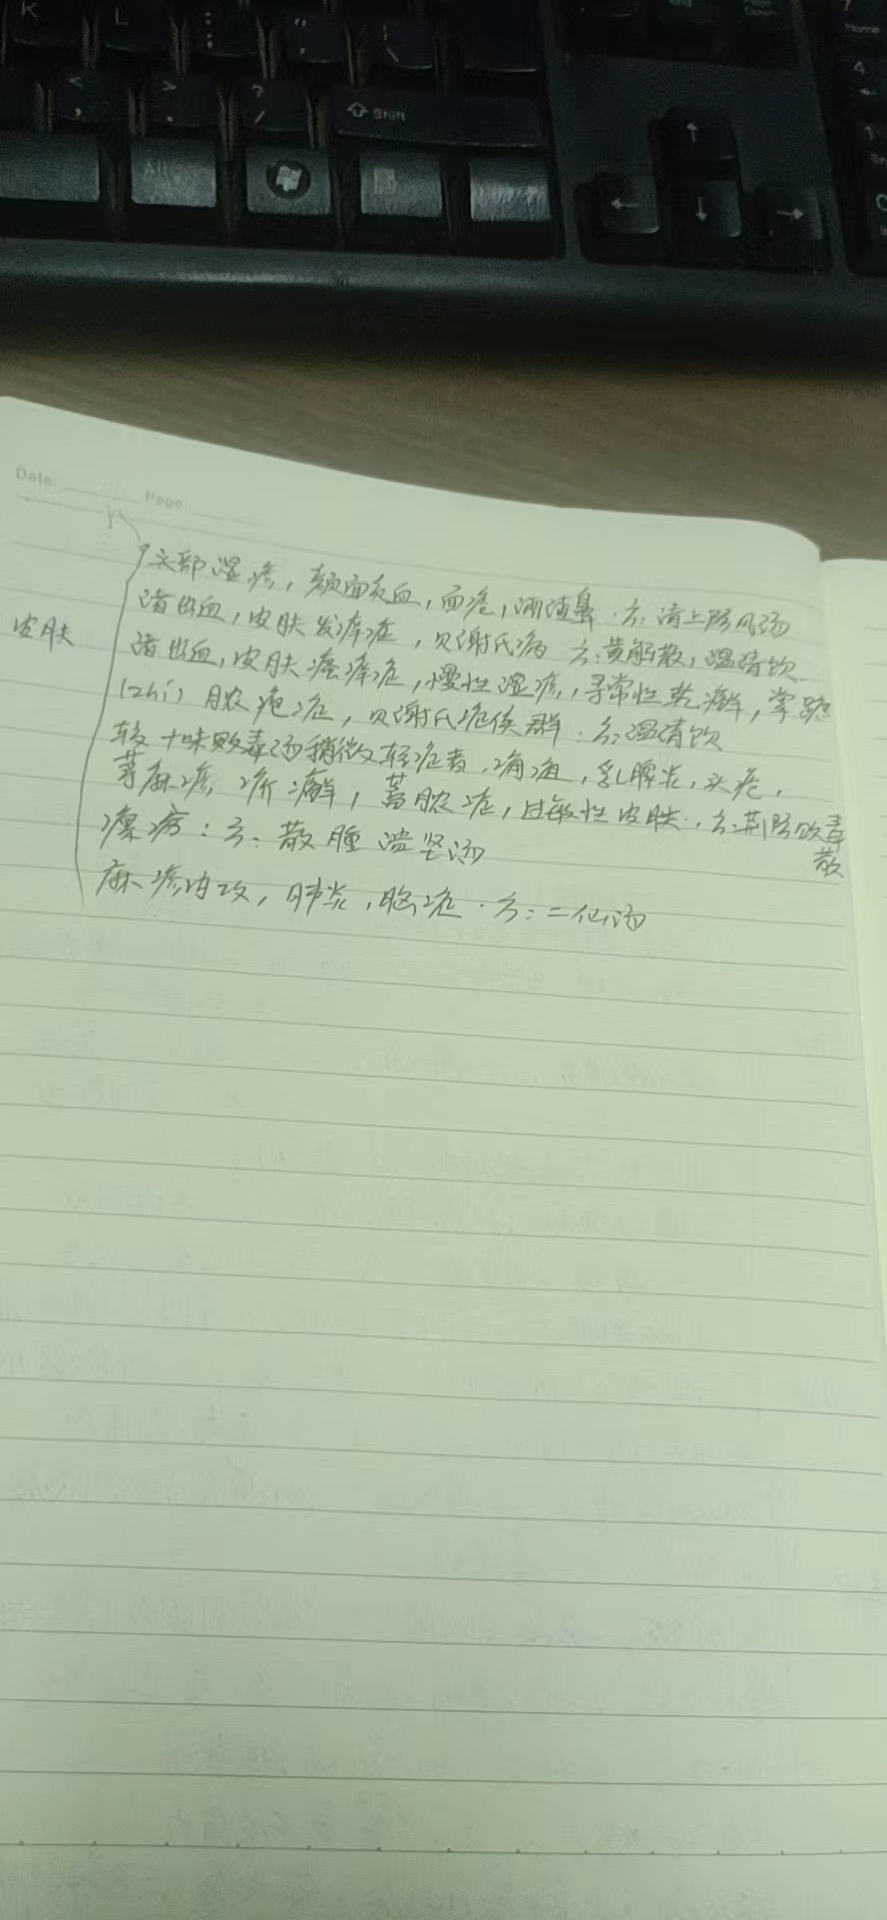 K L : ; " ' | \
< , > . ? / Shift
Home
4
Alt
Date: Page:
皮肤
头部湿疹，颜面充血，面疮，酒渣鼻．方：清上防风汤
诸出血，皮肤发痒症，贝谢氏病 方：黄解散，温清饮
诸出血，皮肤瘙痒症，慢性湿疹，寻常性乾癣，掌蹠
(zhi) 脓疱症，贝谢氏症候群．方：温清饮
较十味败毒汤稍微轻症者，痈疽，乳腺炎，头疮，
荨麻疹，疥癣，蓄脓症，过敏性皮肤．方：荆防败毒
散
瘰疬：方：散腫溃坚汤
麻疹内攻，肺炎，脑症．方：二仙汤